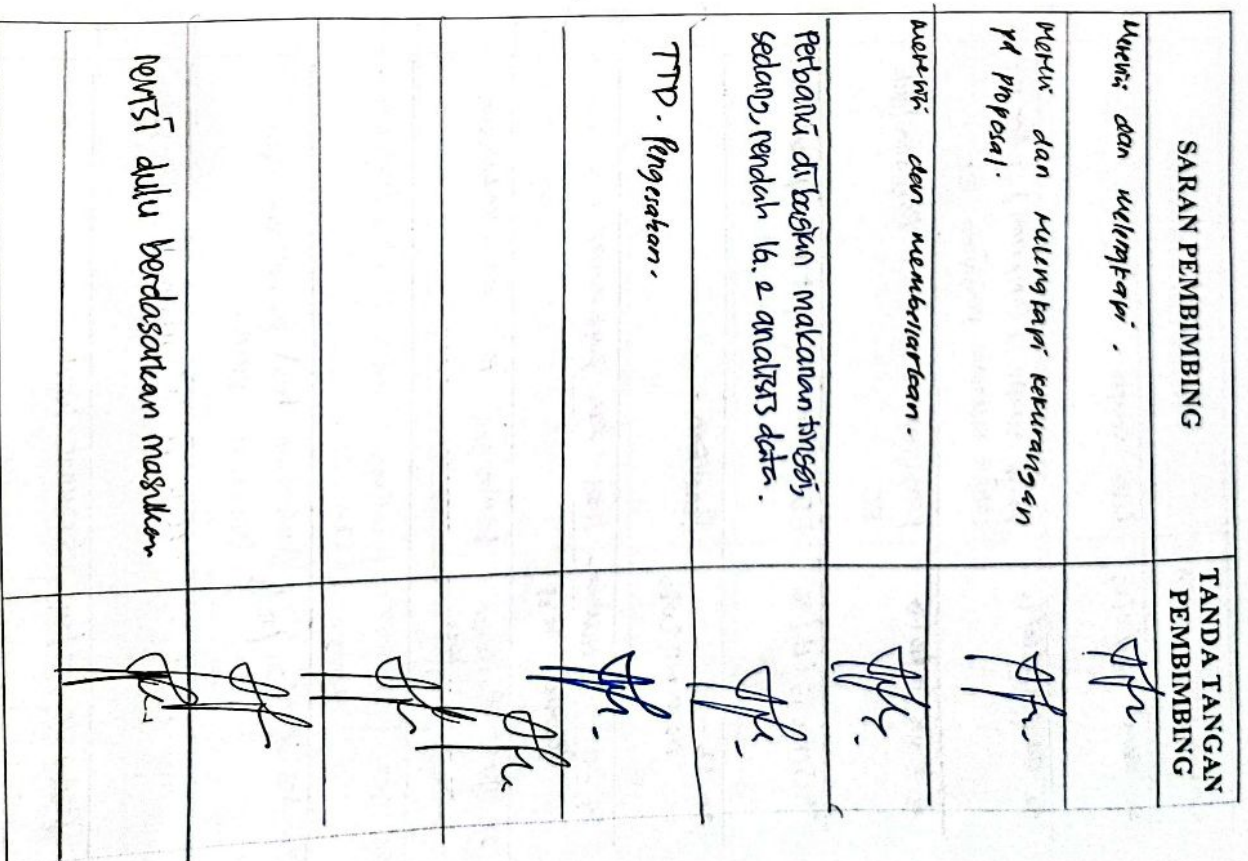 SARAN PEMBIMBING
TANDA TANGAN
PEMBIMBING
Merevisi dan melengkapi.
Merevisi dan melengkapi kekurangan
pd proposal.
merevisi dan
Perbaiki dibagian makanan tinggi,
sedang, rendah 16. 2 analisis data.
TTD. Pengesahan.
revisi dulu berdasarkan masukan